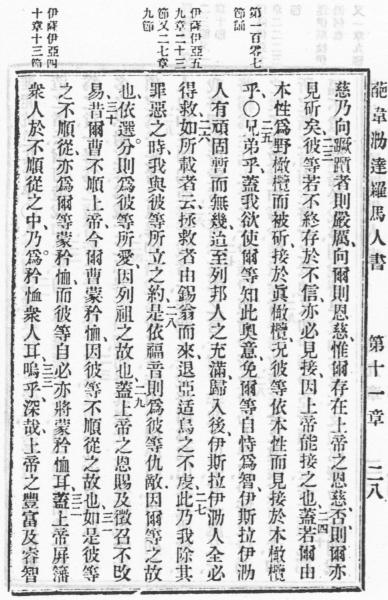 葩韋泐達羅馬人書 第十一章 二八
第一百零七
節誦
伊薩伊亞五
九章二十三
節又二七章
九節
伊薩伊亞四
十章十三節
慈乃向躓者則嚴厲向爾則恩慈惟爾存在上帝之恩慈否則爾亦
二三 二四
見斫矣彼等若不終存於不信亦必見接因上帝能接之也蓋若爾由
本性爲野橄欖而被斫接於眞橄欖况彼等依本性而見接於本橄欖
二五
乎○兄弟乎蓋我欲使爾等知此奧意免爾等自恃爲智伊斯拉伊泐
人有頑固暫而無幾迨至列邦人之充滿歸入後伊斯拉伊泐人全必
二六 二七
得救如所載者云拯救者由錫翁而來退亞适烏之不虔此乃我除其
二八
罪惡之時我與彼等所立之約是依福音則爲彼等仇敵因爾等之故
二九
也依選分則爲彼等所愛因列祖之故也蓋上帝之恩賜及徵召不改
三十 三一
易昔爾曹不順上帝今爾曹蒙矜恤因彼等不順從之故也如是彼等
三二
之不順從亦爲爾等蒙矜恤而彼等自必亦將蒙矜恤耳蓋上帝屏籓
三三
衆人於不順從之中乃爲矜恤衆人耳嗚呼深哉上帝之豐富及睿智